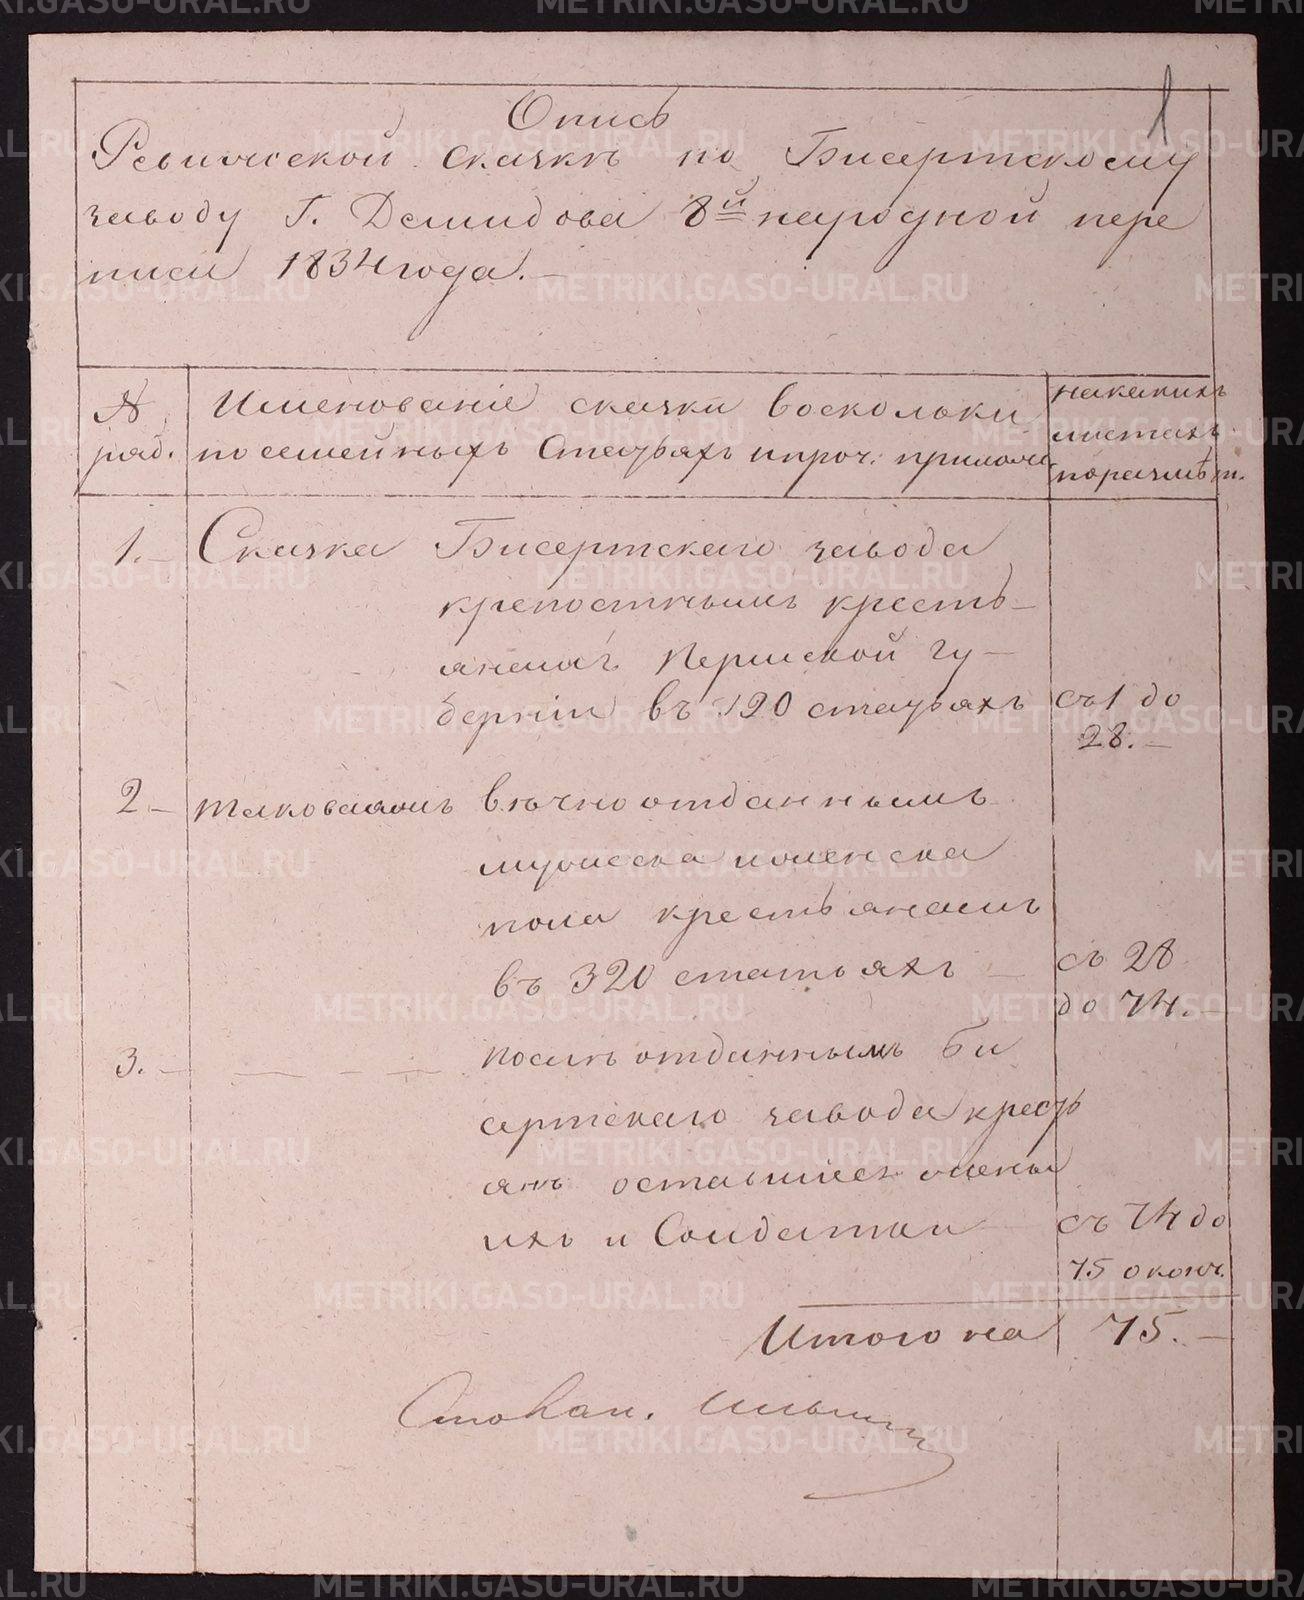 1
Опись
Ревижской скачкѣ по Бисертскому
заводу Г. Демидова 8й народной пере
писи 1834 года.—
№ ряд.
Именованіе скачки восколоки
по семейныхъ статьяхъ и проч:
на какихъ
листахъ
1.— Скачка Бисертскаго завода
крепостнымъ кресть-
янамъ Пермской гу-
берніи въ 120 статьяхъ съ 1 до
28.—
2— таковаяжъ вѣчно отданнымъ
мужеска и женска
пола крестьянамъ
въ 320 статьяхъ — съ 28
до 74.—
3.— — — — — после отданнымъ Би
сертскаго завода кресть
янъ оставшіеся жены
ихъ и Солдатки съ 74 до
75 оконч.
Итого на 75.—
METRIKI.GASO-URAL.RU